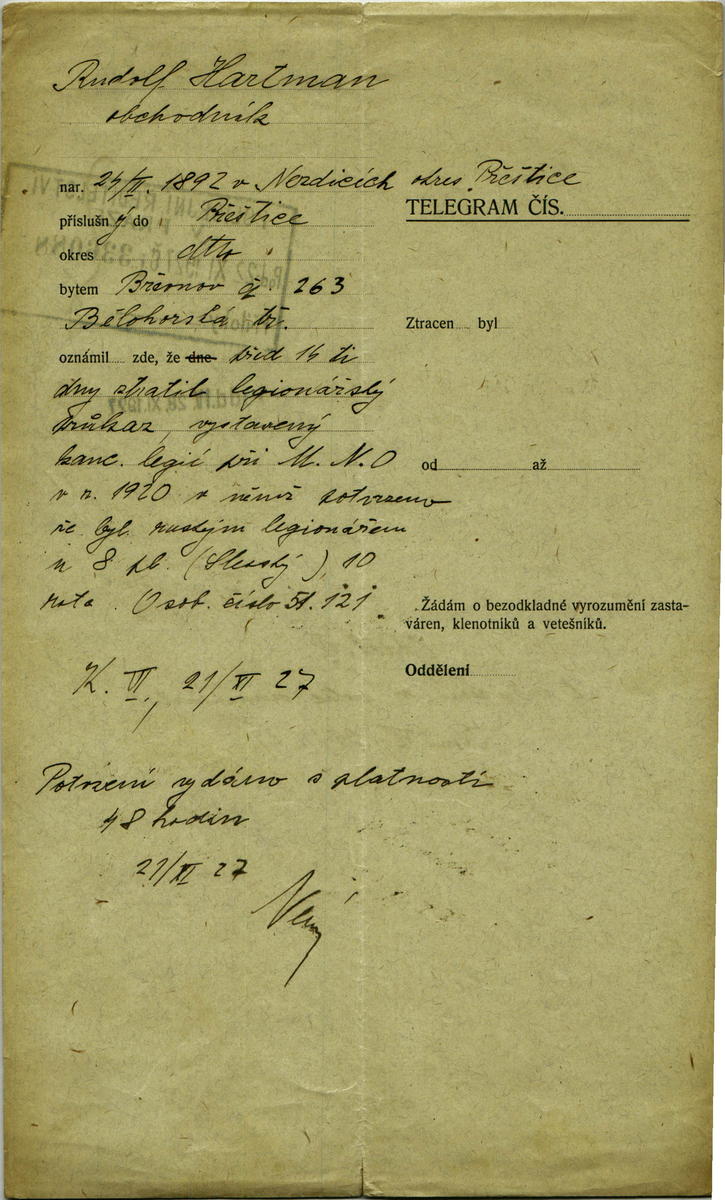 Rudolf Hartman
obchodník
nar. 24/II. 1892 v Nezdicích okres Přeštice
příslušný do Přeštice
TELEGRAM ČÍS.
okres dtto
bytem Břevnov č 263
Bělohorská tř.
Ztracen byl
oznámil zde, že dne před 14 ti
dny ztratil legionářský
průkaz, vystavený
kanc. legií při M. N. O
od až
v r. 1920 v němž potvrzeno
že byl ruským legionářem
u 8 pl. (Slezský), 10
rota. Osob. číslo 51.121.
Žádám o bezodkladné vyrozumění zasta-
váren, klenotníků a vetešníků.
Oddělení
K. VI, 21/XI 27
Potvrzení vydáno s platností
48 hodin
21/XI 27